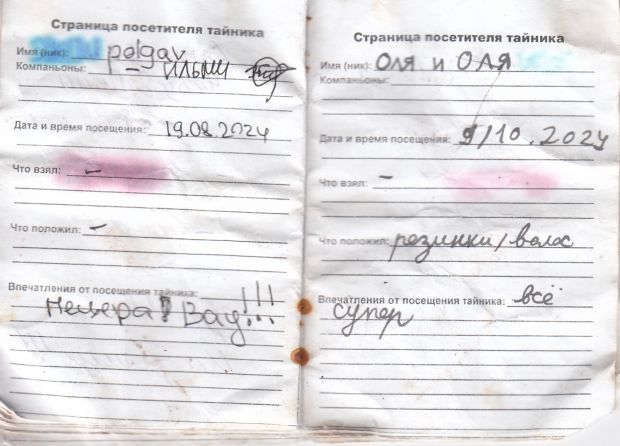 Страница посетителя тайника
Имя (ник): polgav
Компаньоны: –
Дата и время посещения: 19.08.2024
Что взял: –
Что положил: –
Впечатления от посещения тайника: !!!
Вау!...
Страница посетителя тайника
Имя (ник): Оля и ОЛЯ
Компаньоны:
Дата и время посещения: 9/10.2024
Что взял: –
Что положил: резинки/волос
Впечатления от посещения тайника: всё
супер